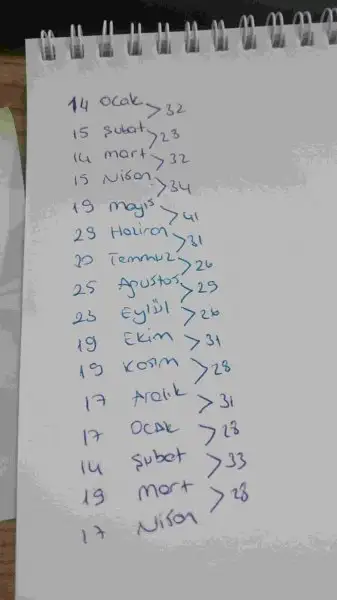 14 Ocak
> 32
15 Şubat
> 28
14 Mart
> 32
15 Nisan
> 34
19 Mayıs
> 41
29 Haziran
> 31
30 Temmuz
> 26
25 Ağustos
> 29
23 Eylül
> 26
19 Ekim
> 31
19 Kasım
> 28
17 Aralık
> 31
17 Ocak
> 28
14 Şubat
> 33
19 Mart
> 28
17 Nisan